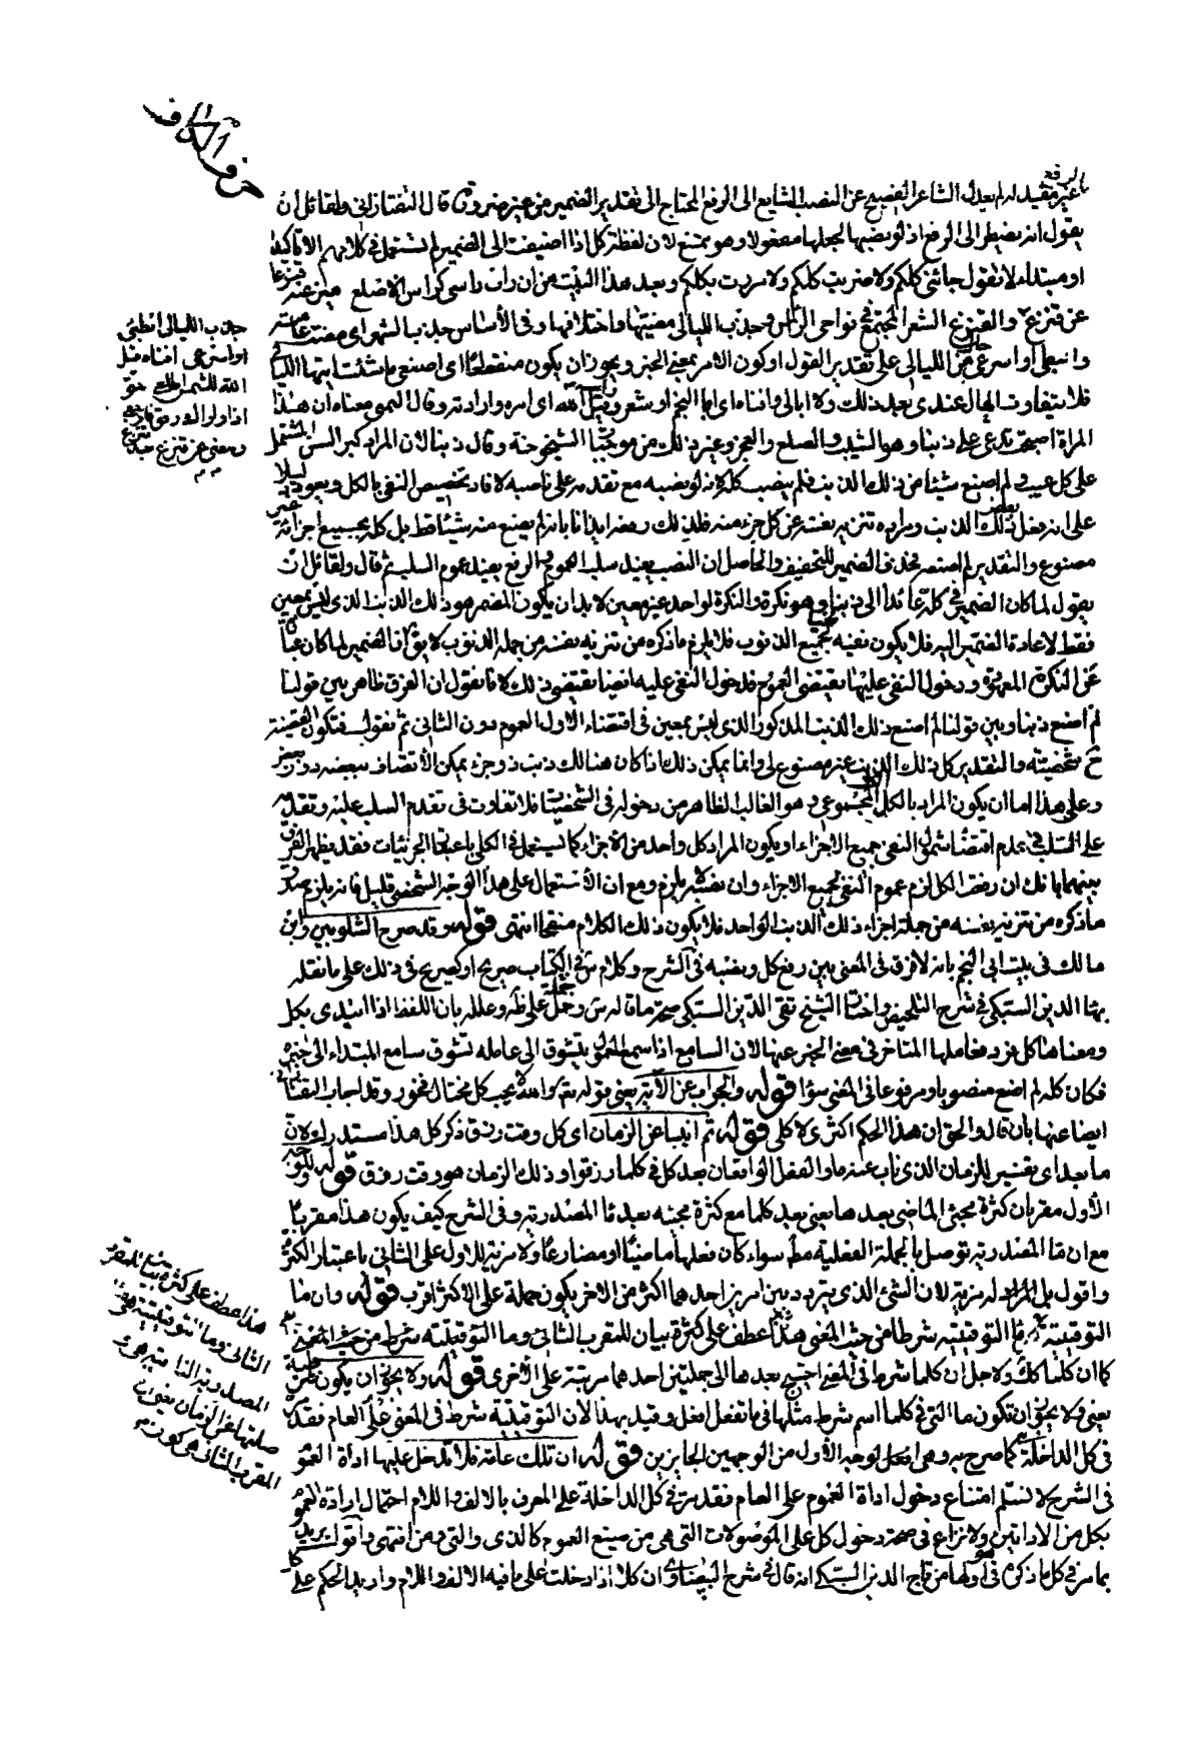 حرف الكاف
غير مقيد له لم يعدل الشاعر الفصيح عن النصب الشايع الى الرفع المحتاج الى تقدير الضمير من غير ضرورة قال التفتازاني ولقائل ان
يقول انه يضطر الى الرفع اذ لو نصبها لجعلها مفعولا وهو ممتنع لان لفظة كل اذا اضيفت الى الضمير لم تستعمل في كلامهم الا تاكيدا
او مبتداء لا تقول جائني كلكم ولا ضربت كلكم ولا مررت بكلكم وبعد هذا البيت من ان رات راسي كراس الاصلع ميز عنه قنزعا
عن قنزع والقنزع الشعر المجتمع في نواحي الراس وجذب الليالي مضيتها واختلافها وفي الأساس جذب الشهر اي مضت عامته
وابطئي او اسرعي من الليالي على تقدير القول او كون الامر بمعنى الخبر ويجوز ان يكون منقطعا اي اصنعي ما شئت ايتها الليالي
فلا يتفاوت الحال عندي بعد ذلك ولا ابالي وافناه اي ابا النجم او شعر راسه وقيل الله اي امره وارادته وقال المعنى معناه ان هذا
المراة اصبحت تدعي علي ذنبا وهو الشيب والصلع والعجز وغير ذلك من موجبات الشيخوخة وقال ذنبا لان المراد كبر السن المشتمل
على كل عيب ولم اصنع شيئا من ذلك الذنب فلم ينصب كله لانه لو نصبه مع تقدمه على ناصبه لافاد تخصيص النفي بالكل ويعود دليلا
على انه فعل بعض ذلك الذنب ومراده تنزيه نفسه عن كل جزء منه فلذلك رفعه ايذانا بانه لم يصنع منه شيئا قط بل كله بجميع اجزائه غير
مصنوع والتقدير لم اصنعه فحذف الضمير للتخفيف والحاصل ان النصب يفيد سلب العموم والرفع يفيد عموم السلب ثم قال ولقائل ان
يقول لما كان الضمير في كله عائدا الى ذنبا وهو نكرة والنكرة لواحد غير معين لا بد ان يكون المضمر هو ذلك الذنب الذي ليس بمعين
فقط لاعادة الضمير اليه فلا يكون نفيه لجميع الذنوب فلا يلزم ما ذكره من تنزيه نفسه من جملة الذنوب لا يق ان الضمير لما كان عبارة
عن النكرة المعهودة ودخول النفي عليها يقتضي العموم فدخول النفي عليه ايضا يقتضي ذلك لانا نقول ان الفرق ظاهر بين قولنا
لم اصنع ذنبا وبين قولنا لم اصنع ذلك الذنب المذكور الذي ليس بمعين في اقتضاء الاول العموم دون الثاني ثم نقول فتكون القضية
ح شخصية والتقدير كل ذلك الذنب غير مصنوع لي وانما يمكن ذلك اذا كان هنالك ذنب ذو جزء يمكن الأتصاف ببعضه دون بعض
وعلى هذا اما ان يكون المراد بالكل الكل المجموعي وهو الغالب الظاهر من دخوله في الشخصيات فلا تفاوت في تقدم السلب عليه وتقدمه
على السلب في عدم اقتضاء شمول النفي جميع الاجزاء او يكون المراد كل واحد من الأجزاء كما يستعمل في الكلي باعتبار الجزئيات فقد يظهر الفرق
بينهما بانك ان رفعت الكل لزم عموم النفي لجميع الاجزاء وان نصبته لم يلزم ومع ان الأستعمال على هذا الوجه الشخصي قليل فانه يلزم
ما ذكره من تنزيه نفسه من جملة اجزاء ذلك الذنب الواحد فلا يكون ذلك الكلام منقحا انتهى قوله وقد صرح الشلوبين وابن
مالك في بيت ابي النجم بانه لا فرق في المعنى بين رفع كل ونصبه في الشرح وكلام س في الكتاب صريح او كصريح في ذلك على ما نقله
بهاء الدين السبكي في شرح التلخيص واختار الشيخ تقي الدين السبكي صحة ما قاله س وحمله على ظه وعلله بان اللفظ اذا ابتدى بكل
ومعناها كل فرد فعاملها المتاخر في معنى الخبر عنها لان السامع اذا سمع المفعول يتشوق الى عامله تشوق سامع المبتداء الى خبره
فكان كله لم اصنع منصوبا ومرفوعا في المعنى سواء قوله والجواب عن الآية يعني قوله تعم والله لا يحب كل مختال فخور وقد اجاب التفتازاني
ايضا عنها بان قال والحق ان هذا الحكم اكثري لا كلي قوله ثم انيبا عن الزمان اي كل وقت رزق ذكر كل هذا مستدرك لان
ما بعد اي تفسير للزمان الذي ناب عنه ما والفعل الواقعان بعد كل في كلما رزقوا وذلك الزمان هو وقت رزق قوله للوجه
الأول مقربان كثرة مجئ الماضي بعدها يعني بعد كلما مع كثرة مجيئه بعد ما المصدرية وفي الشرح كيف يكون هذا مقربا
مع ان ما المصدرية توصل بالجملة الفعلية مط سواء كان فعلها ماضيا او مضارعا ولا مزية للاول على الثاني باعتبار الكثرة
واقول بل المراد له مزية لان الشئ الذي يتردد بين امرين احدهما اكثر من الاخر يكون حمله على الاكثر اقرب قوله وان ما
التوقيتية شرط من حيث المعنى هذا عطف على كثرة بيان للمقرب الثاني وما التوقيتية شرط من حيث المعنى
كما ان كلما كك ولاجل ان كلما شرط في المعنى احتيج بعدها الى جملتين احدهما مرتبة على الأخرى قوله ولا يجوز ان يكون شرطية
يعني ولا يجوز ان تكون ما التي في كلما اسم شرط مثلها في ما تفعل افعل وقيد بهذا لان التوقيتية شرط في المعنى
في كل الداخلة كما صرح به وهي افعل لوجه الأول من الوجهين الجايزين قوله ان تلك عامة فلا تدخل عليها اداة العموم
في الشرح لا نسلم امتناع دخول اداة العموم على العام فقد مر في كل الداخلة على المعرف بالالف واللام احتمال ارادة العموم
بكل من الاداتين ولا نزاع في صحة دخول كل على الموصولات التي هي من صيغ العموم كالذي والتي ومن انتهى واقول يريد
بما مر في كل ما ذكره في اولها من تاج الدين السبكي انه قال في شرح البيضاوي ان كلا اذا دخلت على ما فيه الالف واللام واريد الحكم على كل
جذب الليالي ابطئي
او اسرعي افناه قيل
الله للشمس اطلعي حتى
اذا واراك افق فارجعي
ومعنى عن قنزع بعد قنزع
هذا عطف على كثرة بيان للمقرب
الثاني وما التوقيتية هي
المصدرية النائبة هي و
صلتها عن الزمان يعني ان
المقرب الثاني هو كون